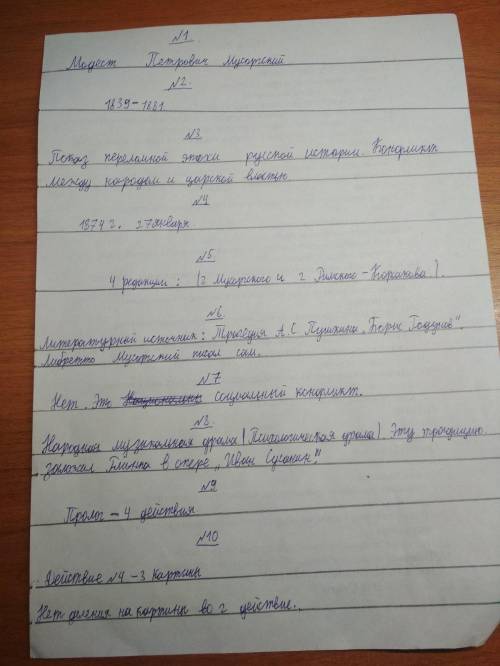 №1.
Модест Петрович Мусоргский
№2.
1839-1881.
№3
Показ переломной эпохи русской истории. Конфликт
между народом и царской властью
№4
1874 г. 27 января
№5
4 редакции: (2 Мусоргского и 2 Римского-Корсакова).
№6
Литературный источник: Трагедия А.С Пушкина „Борис Годунов".
Либретто Мусоргский писал сам.
№7
Нет. Это социальный конфликт.
№8.
Народная музыкальная драма (Психологическая драма) Эту традицию
заложил Глинка в опере „Иван Сусанин".
№9
Пролог - 4 действия
№10
Действие №4 - 3 картины
Нет деления на картины во 2 действие.